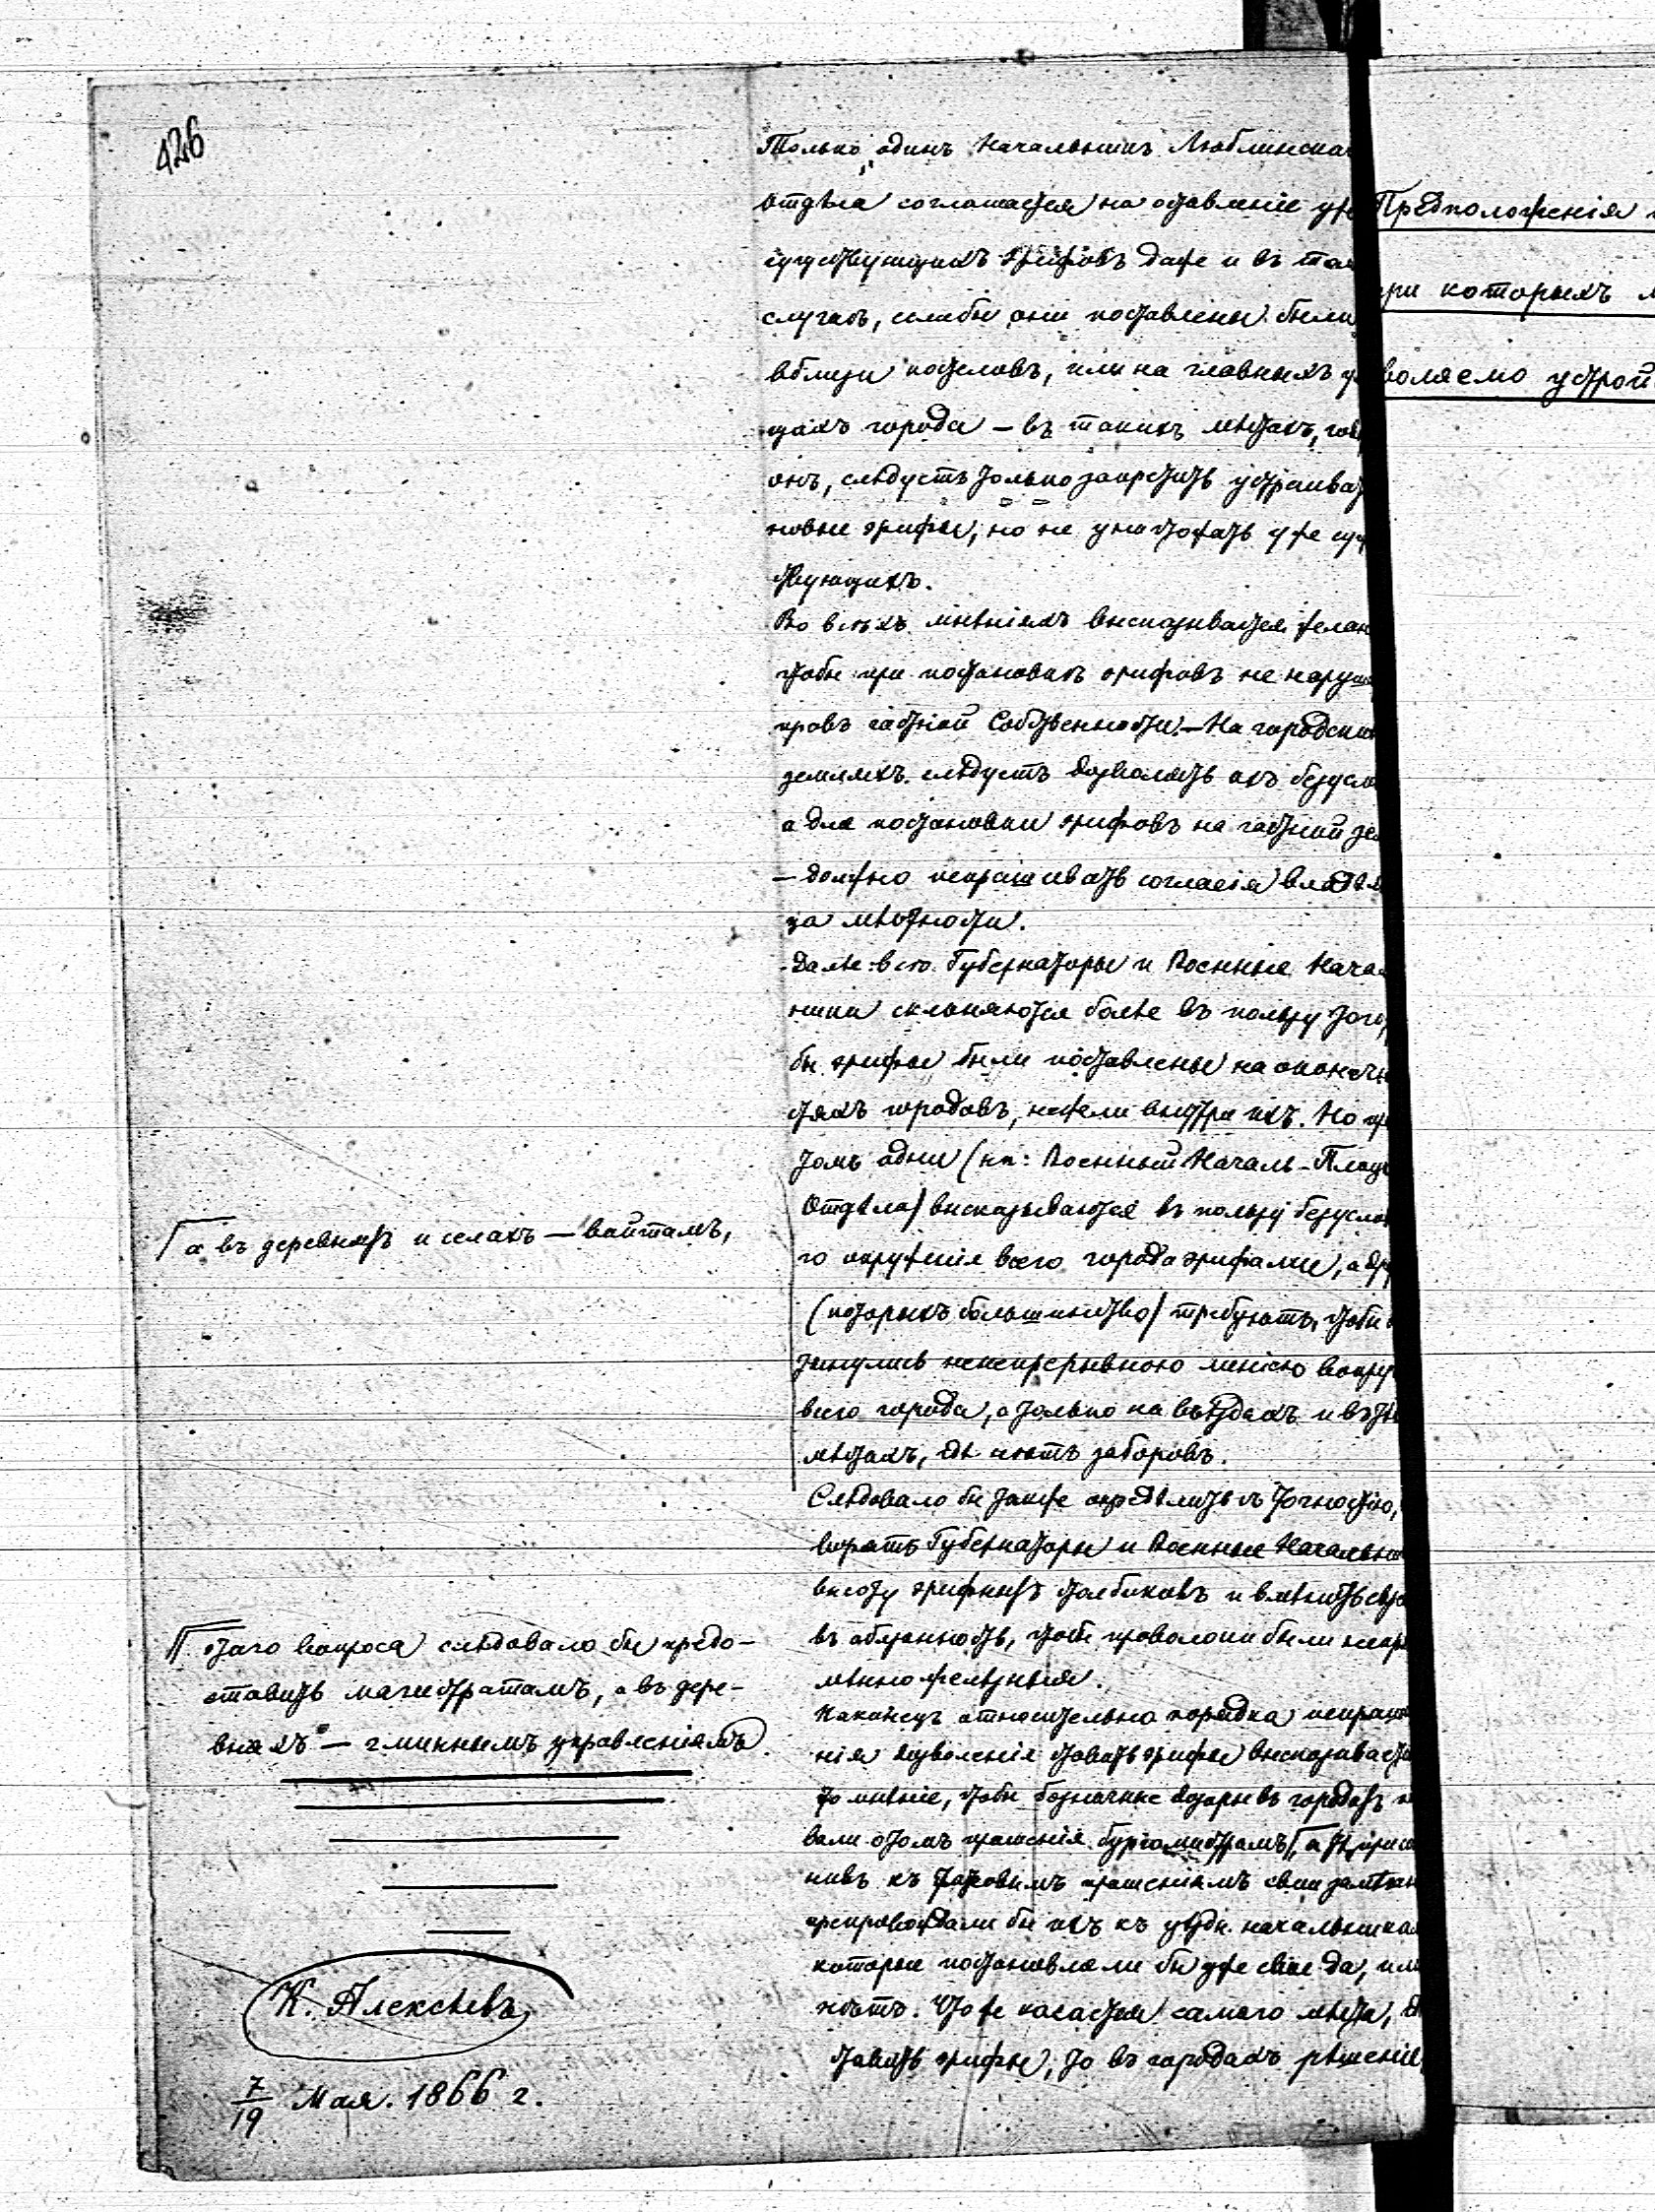 426
Только одинъ Начальникъ Люблинска
отдѣла соглашается на оставленіе уже
существующихъ эрифовъ даже и въ та
случаѣ, еслибы они поставлены были
вблизи костеловъ, или на главныхъ у
цахъ города — въ такихъ мѣстахъ, гов
онъ, слѣдуетъ только запретить устраиват
новые эрифы, но не уничтожать уже сущ
ствующихъ.
Во всѣхъ мнѣніяхъ высказывается желан
чтобы при постановкѣ эрифовъ не наруша
правъ частной собственности. — На городски
земляхъ слѣдуетъ дозволять ихъ безусло
а для постановки эрифовъ на частной зе
— должно испрашивать согласія владѣл
ца мѣстности.
Далѣе всѣ Губернаторы и Военные Нача
ники склоняются болѣе въ пользу того,
бы эрифы были поставлены на оконечн
стяхъ городовъ, нежели внутри ихъ. Но пр
томъ одни (нп: Военный Началь- Плоцк
Отдѣла) высказываются въ пользу безуслов
го окруженія всего города эрифами, а др
(которыхъ большинство) требуютъ, чтобы
тянулись не непрерывною линіею вокру
всего города, а только на въѣздахъ и въ тѣ
мѣстахъ, гдѣ нѣтъ заборовъ.
Слѣдовало бы также опредѣлить съ точностію,
Губернаторы и Военные Начальни
высоту эрифныхъ столбиковъ и вмѣнить евре
въ обязанность, чтобы проволоки были непр
мѣнно желѣзныя.
Наконецъ относительно порядка испраши
нія дозволенія ставить эрифы высказывает
то мнѣніе, чтобы божничные дозоры въ городахъ
вали о томъ прошенія бургомистрамъ, а тѣ, прис
нивъ къ таковымъ прошеніямъ свои замѣчан
препровождали бы ихъ къ уѣздн. начальника
которые постановляли бы уже свое да, или
нѣтъ. Что же касается самого мѣста, гдѣ
ставить эрифы, то въ городахъ рѣшеніе
а въ деревняхъ и селахъ — войтамъ,
этаго вопроса слѣдовало бы предо-
ставить магистратамъ, а въ дере-
вняхъ — гминнымъ управленіямъ.
К. Алексѣевъ
7/19 Мая. 1866 г.
Предположенія
при которыхъ
воляемо устрой